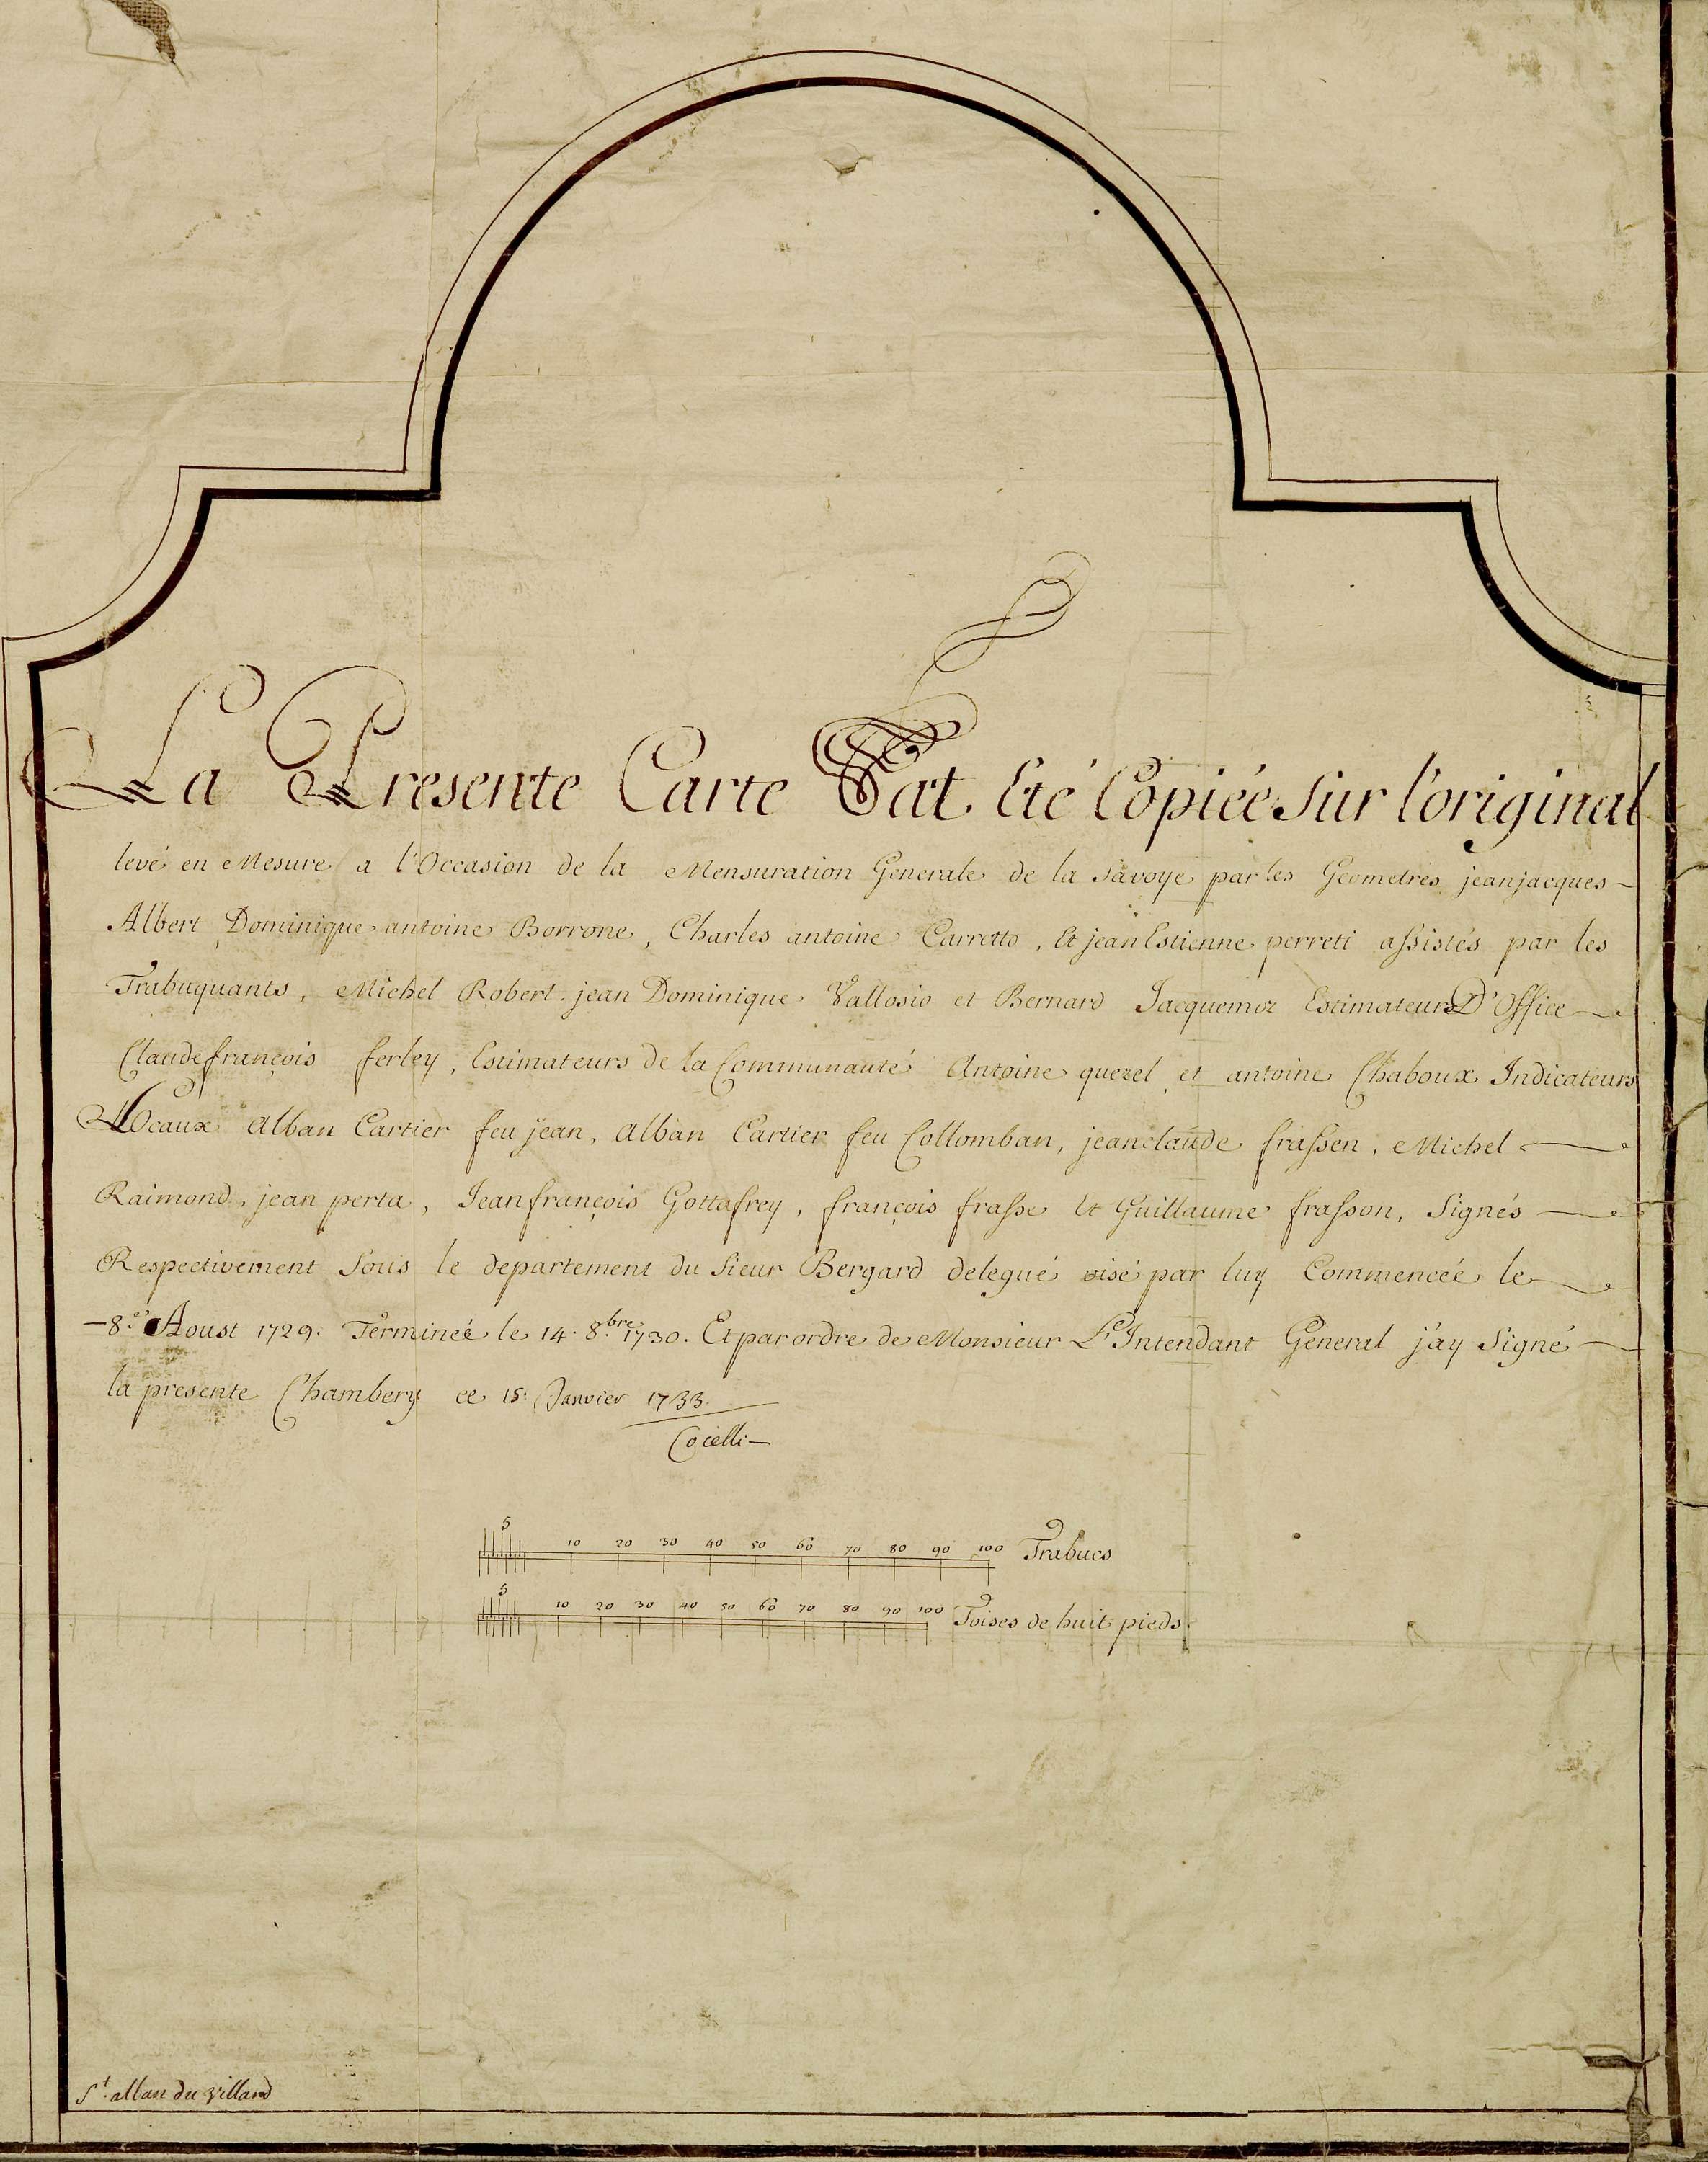 La Presente Carte Eat Eté Copiée Sur l'original
levé en Mesure a l'Occasion de la Mensuration Generale de la Savoye par les Geometres jeanjacques
Albert Dominique antoine Borrone, Charles antoine Carretto, Et jean Estienne perreti assistés par les
Trabuquants, Michel Robert jean Dominique Vallosio et Bernard Jacquemoz Estimateurs D'Office
Claudefrançois ferley, Estimateurs de la Communauté Antoine quezel et antoine Chaboux Indicateurs
Locaux Alban Cartier feu jean, Alban Cartier feu Collomban, jeanclaude frassen, Michel
Raimond, jean perta, Jeanfrançois Gottafrey, françois frasse Et Guillaume frasson, Signés
Respectivement Sous le departement du Sieur Bergard delegué visé par luy Commencée le
8.e Aoust 1729. Terminée le 14. 8.bre 1730. Et par ordre de Monsieur L'Intendant General j'ay Signé
la presente Chambery ce 15: Janvier 1733.
Cocelli
5 10 20 30 40 50 60 70 80 90 100 Trabucs
5 10 20 30 40 50 60 70 80 90 100 Toises de huit pieds.
S.t alban du villard